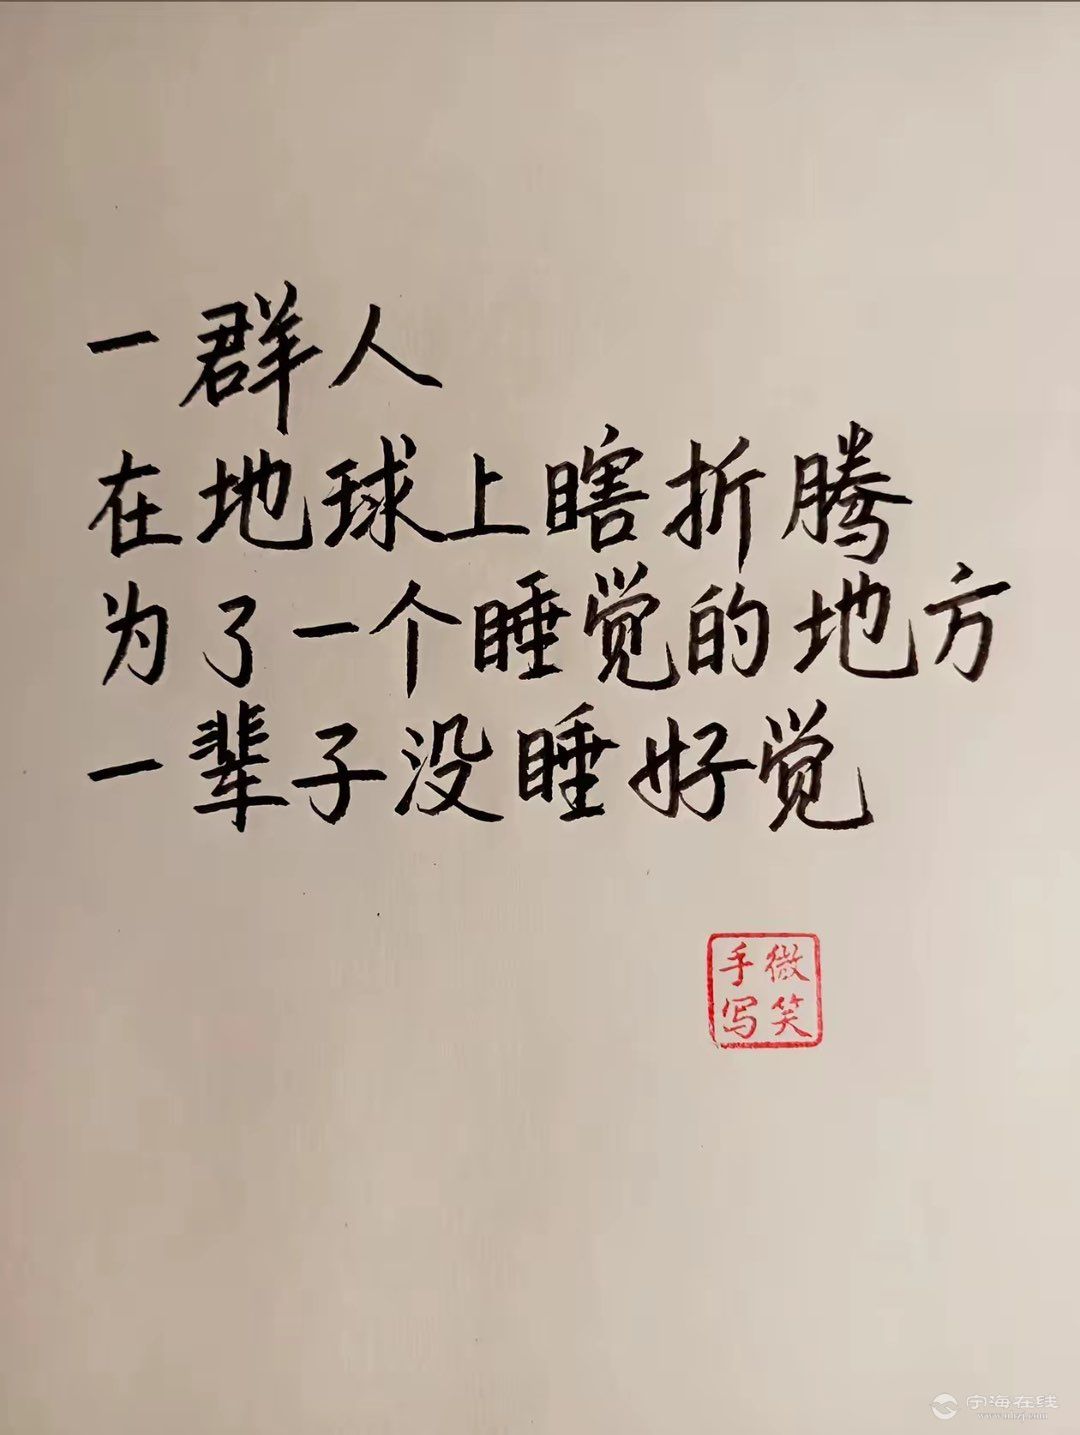 一群人
在地球上瞎折腾
为了一个睡觉的地方
一辈子没睡好觉
微笑
手写
宁海在线
www.nhzj.com